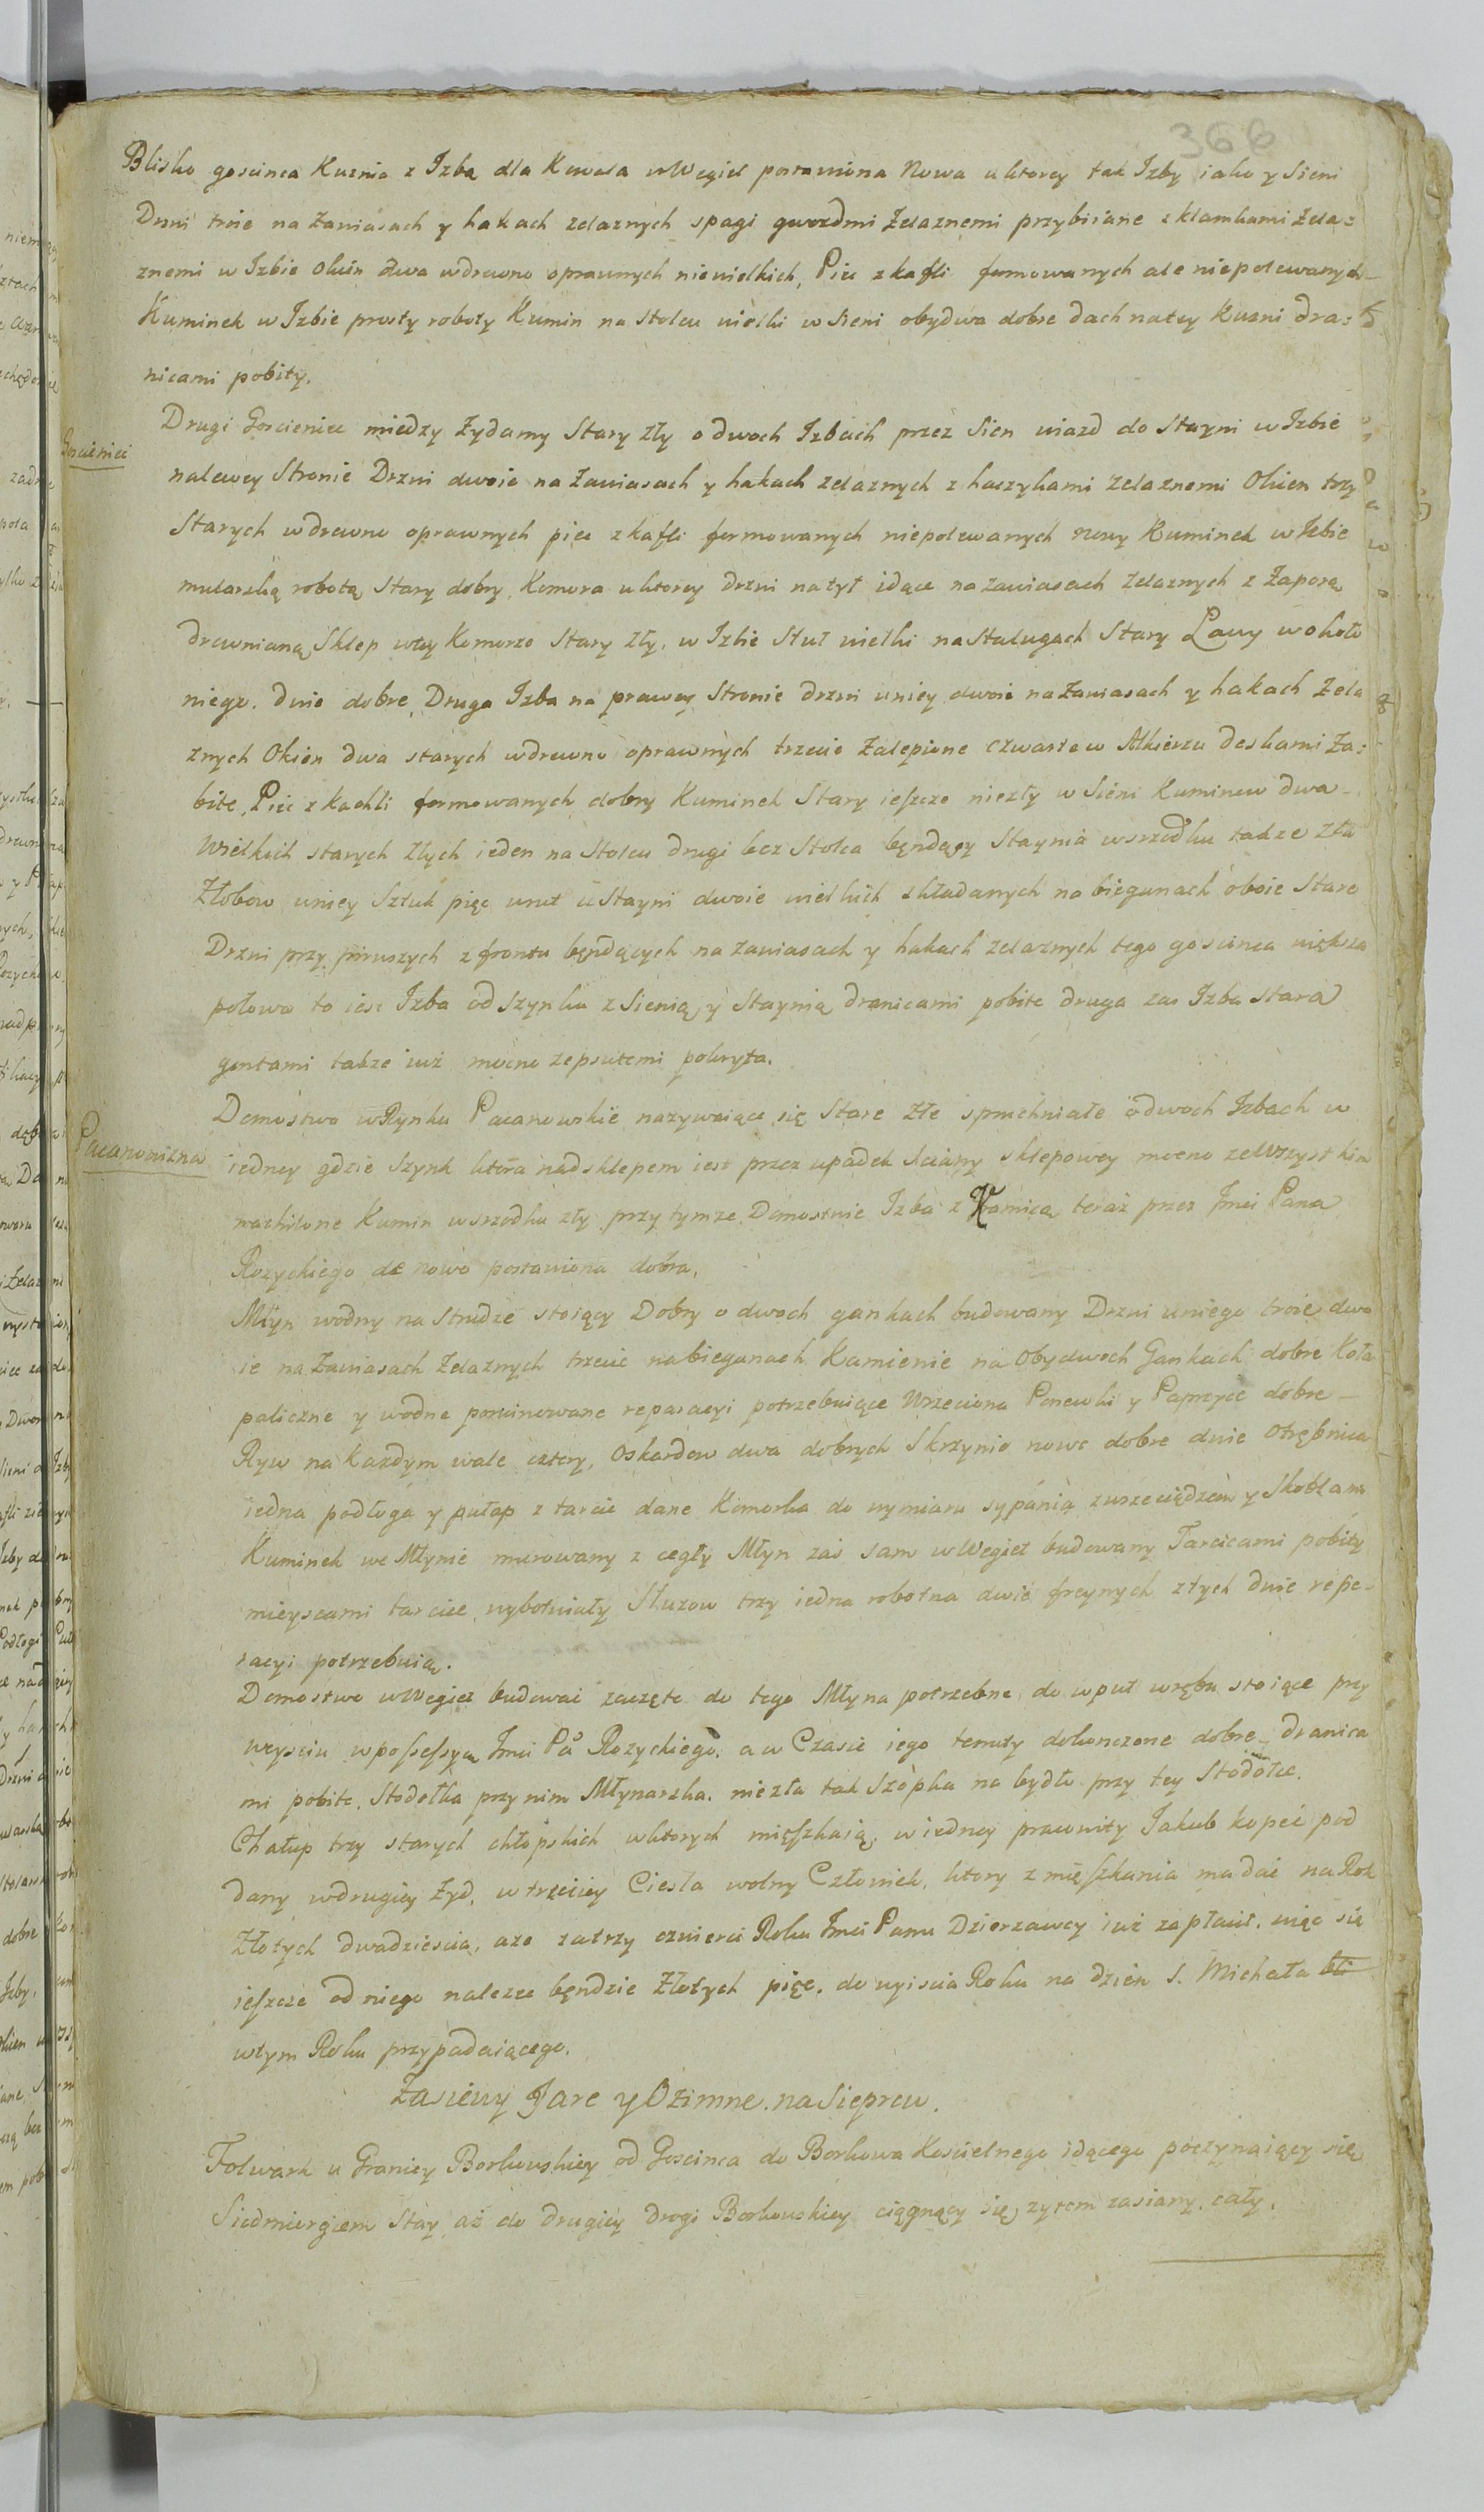 366
Blisko goscinca Kuznia z Izbą dla Kowala w Węgieł postawiona Nowa u ktorey tak Izby iako y Sieni
Drzwi troie na zawiasach y hakach zelaznych spągi gwozdmi żelaznemi przybiiane z klamkami żela=
znemi w Izbie okien dwa w drewno oprawnych niewielkich, Piec z kafli formowanych ale niepolewanych
Kuminek w Izbie prosty roboty Kumin na stolcu wielki w Sieni obydwa dobre dach na tey Kuzni dra=
nicami pobity.
Gosciniec
Drugi Gosceniec miedzy Zydamy Stary zły o dwoch Izbach przez Sien wiazd do Stayni w Izbie
na lewey Stronie Drzwi dwoie na zawiasach y hakach zelaznych z haczykami zelaznemi Okien trzy
Starych w drewno oprawnych piec z kafli formowanych niepolewanych nowy Kuminek w Izbie
mularską robotą stary dobry, Komora u ktorey drzwi na tył idące na zawiasach zelaznych z zaporą
drewnianą Sklep w tey Komorze Stary zły, w Izbie Stuł wielki na Stalugach Stary Ławy wokoło
niego. dwie dobre, Druga Izba na prawey Stronie drzwi u niey dwoie na zawiasach y hakach zela
znych Okien dwa starych w drewno oprawnych trzecie zalepione czwarte w Alkierzu deskami za=
bite, Piec z kachli formowanych dobry Kuminek Stary ieszcze niezły w Sieni Kuminow dwa
Wielkich starych złych ieden na Stolcu drugi bez Stolca będący Staynia wsrzodku takze zła
Złobow w niey Sztuk pięc wrut u Stayni dwoie wielkich składanych na biegunach oboie Stare
Drzwi przy pirwszych z frontu będących na zawiasach y hakach zelaznych tego goscinca większa
połowa to iest Izba od szynku z Sienią y Staynią dranicami pobite druga zas Izba stara
gontami takze iuż mocno zepsutemi pokryta.
Pacanowizna
Domostwo w Rynku Pacanowskie nazywaiące się Stare złe spruchniałe o dwoch Izbach w
iedney gdzie Szynk ktora nad sklepem iest przez upadek sciany sklepowey mocno ze wszystkim
nachilone Kumin wsrzodku zły przy tymze Domostwie Izba z Kamicą teraz przez Jmci Pana
Rozyckiego de novo postawiona dobra.
Młyn wodny na Strudze stoiący Dobry o dwoch gankach budowany Drzwi u niego troie dwo
ie na zawiasach zelaznych trzecie na biegunach Kamienie na Obydwoch Gankach dobre Koła
paliczne y wodne poruinowane reparacyi potrzebuiące Wrzeciona Ponewki y Paprzyce dobre
Ryw na każdym wale cztery, Oskardow dwa dobrych Skrzynie nowe dobre dwie Otrębnica
iedna podłoga y pułap z tarcic dane Komorka do wymiaru sypania z wrzeciądzem y Skoblami
Kuminek we Młynie murowany z cegły Młyn zas sam w Węgieł budowany Tarcicami pobity
mieyscami tarcice wybotwiały Sluzow trzy iedna robotna dwie freynych z tych dwie repe-
racyi potrzebuią.
Domostwo w Węgieł budowac zaczęte do tego Młyna potrzebne do w puł wrębu stoiące przy
weysciu w possessyą Jmci Pa Rozyckiego, a w Czasie iego tenuty dokonczone dobre dranica
mi pobite. Stodołka przy nim Młynarska. niezła tak Szopka na bydło przy tey Stodołce.
Chałup trzy starych chłopskich w ktorych mięszkaią. w iedney pracowity Jakub kopeć pod
dany w drugiey żyd, w trzeciey Ciesla wolny Człowiek, ktory z mięszkania ma dać na Rok
Złotych dwadziescia, aze za trzy czwierci Roku Jmci Panu Dzierzawcy iuż zapłacił, więc się
ieszcze od niego nalezec będzie Złotych pięc. do wyiscia Roku na dzien S. Michała
w tym Roku przypadaiącego.
Zasiewy Jare y Ozimne. na Sieprcu.
Folwark u Graniey Borkowskiey od Goscinca do Borkowa Koscielnego idącego poczynaiący się
Siedmiergiem Stay aż do drugiey drogi Borkowskiey ciągnący się zytem zasiany. cały.